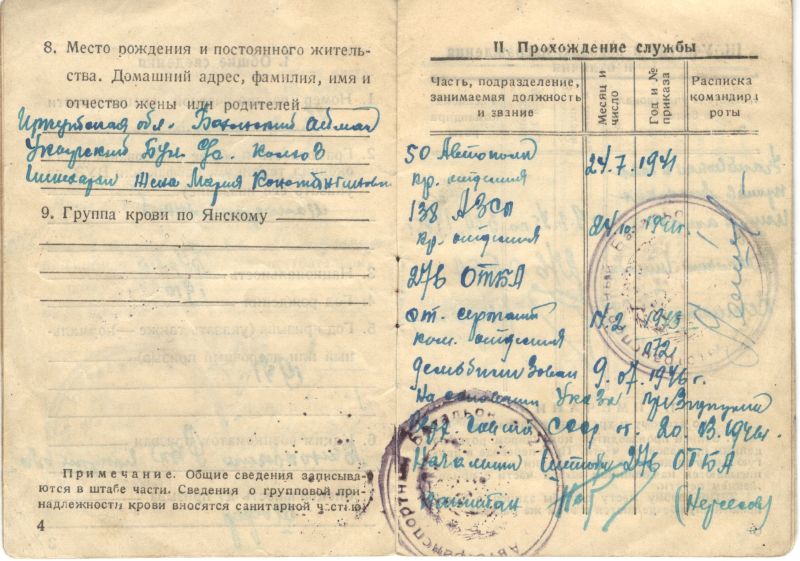 8. Место рождения и постоянного житель-
ства. Домашний адрес, фамилия, имя и
отчество жены или родителей
Иркутская обл. Боханский аймак
Укырский Бул. Ул. колхоз
жена Мария Константиновна
9. Группа крови по Янскому
Примечание. Общие сведения записыва-
ются в штабе части. Сведения о групповой при-
надлежности крови вносятся санитарной частью.
4
II. Прохождение службы
Часть, подразделение,
занимаемая должность
и звание
Месяц и
число
Год и №
приказа
Расписка
командира
роты
50 Автополк 24.7. 1941
кр.
138 АЗСП 24.10. 1941г.
кр.
276 ОТКА
ст. сержант 17.2 1943
ком. отделения 272
демобилизован 9. 07. 1946 г.
На основании Указа Президиума
Вер. Совета СССР от 20.03.1946г.
Начальник Штаба 276 ОТКА
Капитан
Автотранспортный Батальон